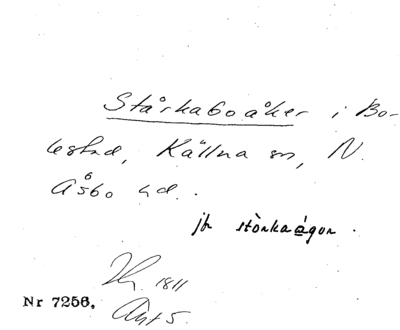 Stårkaboåker i Bo-
kstad, Källna sn, N.
Åsbo hd.
jfr stòrkaágor.
1811
Nr 7256. Ant 5.